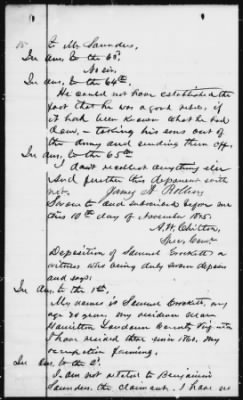 to Mr Saunders.
In ans. to the 63d.
No sir.
In ans. to the 64th.
He could not have established the
fact that he was a good rebel, if
it had been known what he had
done, - taking his sons out of
the army and sending them off.
In ans. to the 65th
don't recollect anything else
And further this deponent saith
not. James H.
Sworn to and subscribed before me
this 10th day of November 1875.
A. H. Chilton,
Spec. Comr.
Deposition of Samuel Crockett a
witness who being duly sworn deposes
and says:
In ans. to the 1st.
My name is Samuel Crockett, my
age 30 years, my residence near
Hamilton Loudoun County Virginia
I have resided there since 1860. My
occupation farming.
In ans. to the 2d
I am not related to Benjamin
Saunders, the claimant. I have no